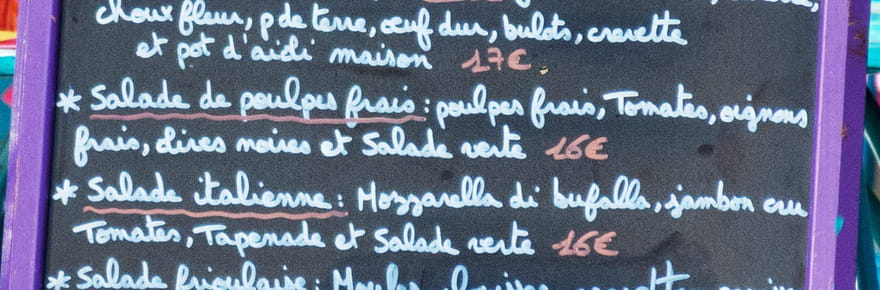 choux fleur, p de terre, œuf dur, bulots, crevette
et pot d'aioli maison 17€
* Salade de poulpes frais : poulpes frais, Tomates, oignons
frais, olives noires et Salade verte 16€
* Salade italienne : Mozzarella di bufalla, jambon cru
Tomates, Tapenade et Salade verte 16€
* Salade frioulaise : Moules